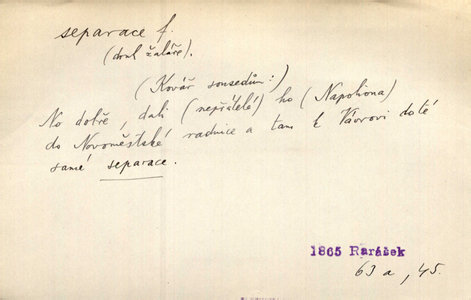 separace f.
(druh žaláře).
(Kovář sousedům:)
No dobře, dali (nepřátelé) ho (Napoliona)
do Novoměstské radnice a tam k Vávrovi do té
samé separace.
1865 Rarášek
63 a, 45.